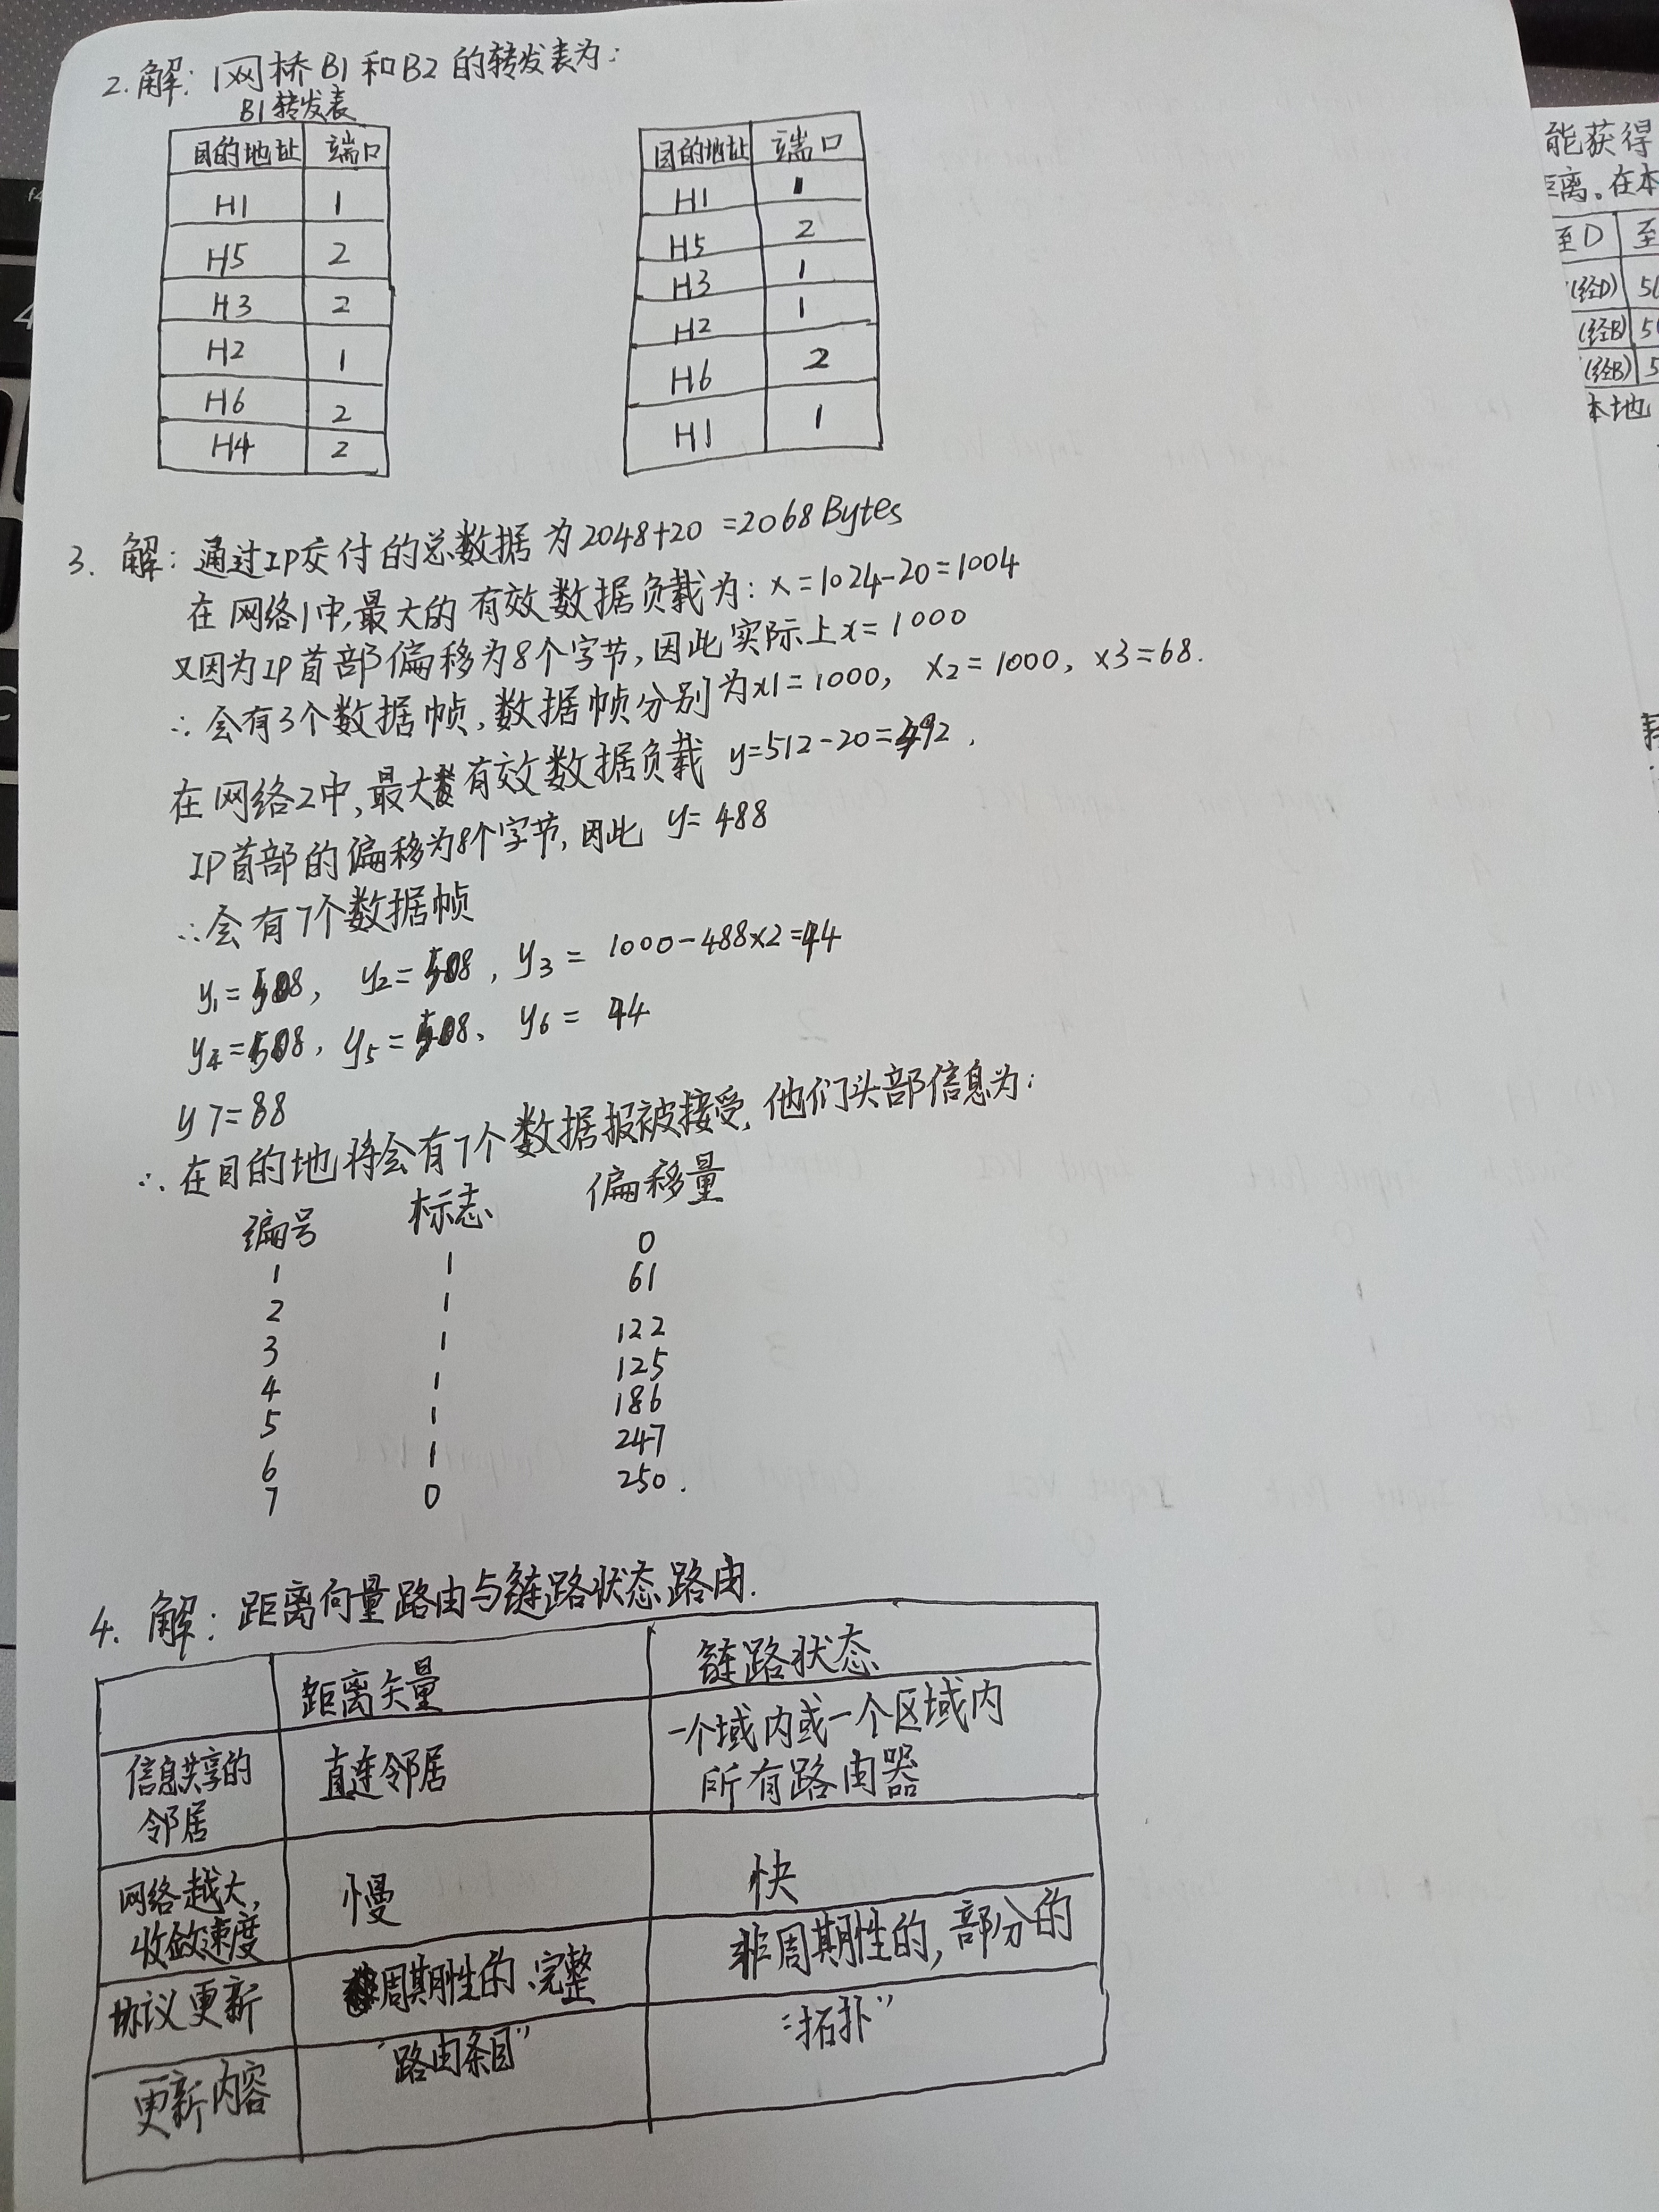 2.解：网桥B1和B2的转发表为：
B1转发表
目的地址 端口
H1 1
H5 2
H3 2
H2 1
H6 2
H4 2
目的地址 端口
H1 1
H5 2
H3 1
H2 1
H6 2
H1 1
3. 解：通过IP交付的总数据为2048+20=2068Bytes
在网络1中,最大的有效数据负载为：x=1024-20=1004
又因为IP首部偏移为8个字节,因此实际上x=1000
∴会有3个数据帧,数据帧分别为x1=1000, x2=1000, x3=68.
在网络2中,最大有效数据负载 y=512-20=492,
IP首部的偏移为8个字节,因此 y=488
∴会有7个数据帧
y1= 8, y2= 8, y3= 1000-488x2=44
y4= 8, y5= 8、y6= 44
y7=88
∴在目的地将会有7个数据报被接受,他们头部信息为：
编号 标志 偏移量
1 1 0
2 1 61
3 1 122
4 1 125
5 1 186
6 1 247
7 0 250.
4. 解：距离向量路由与链路状态路由.
距离矢量 链路状态
信息共享的邻居 直连邻居 一个域内或一个区域内
所有路由器
网络越大,
收敛速度 慢 快
协议更新 周期性的、完整 非周期性的,部分的
更新内容 “路由条目” “拓扑”
能获得
距离。在本
至D 至
(经D) 50
(经B) 50
(经B) 5
本地